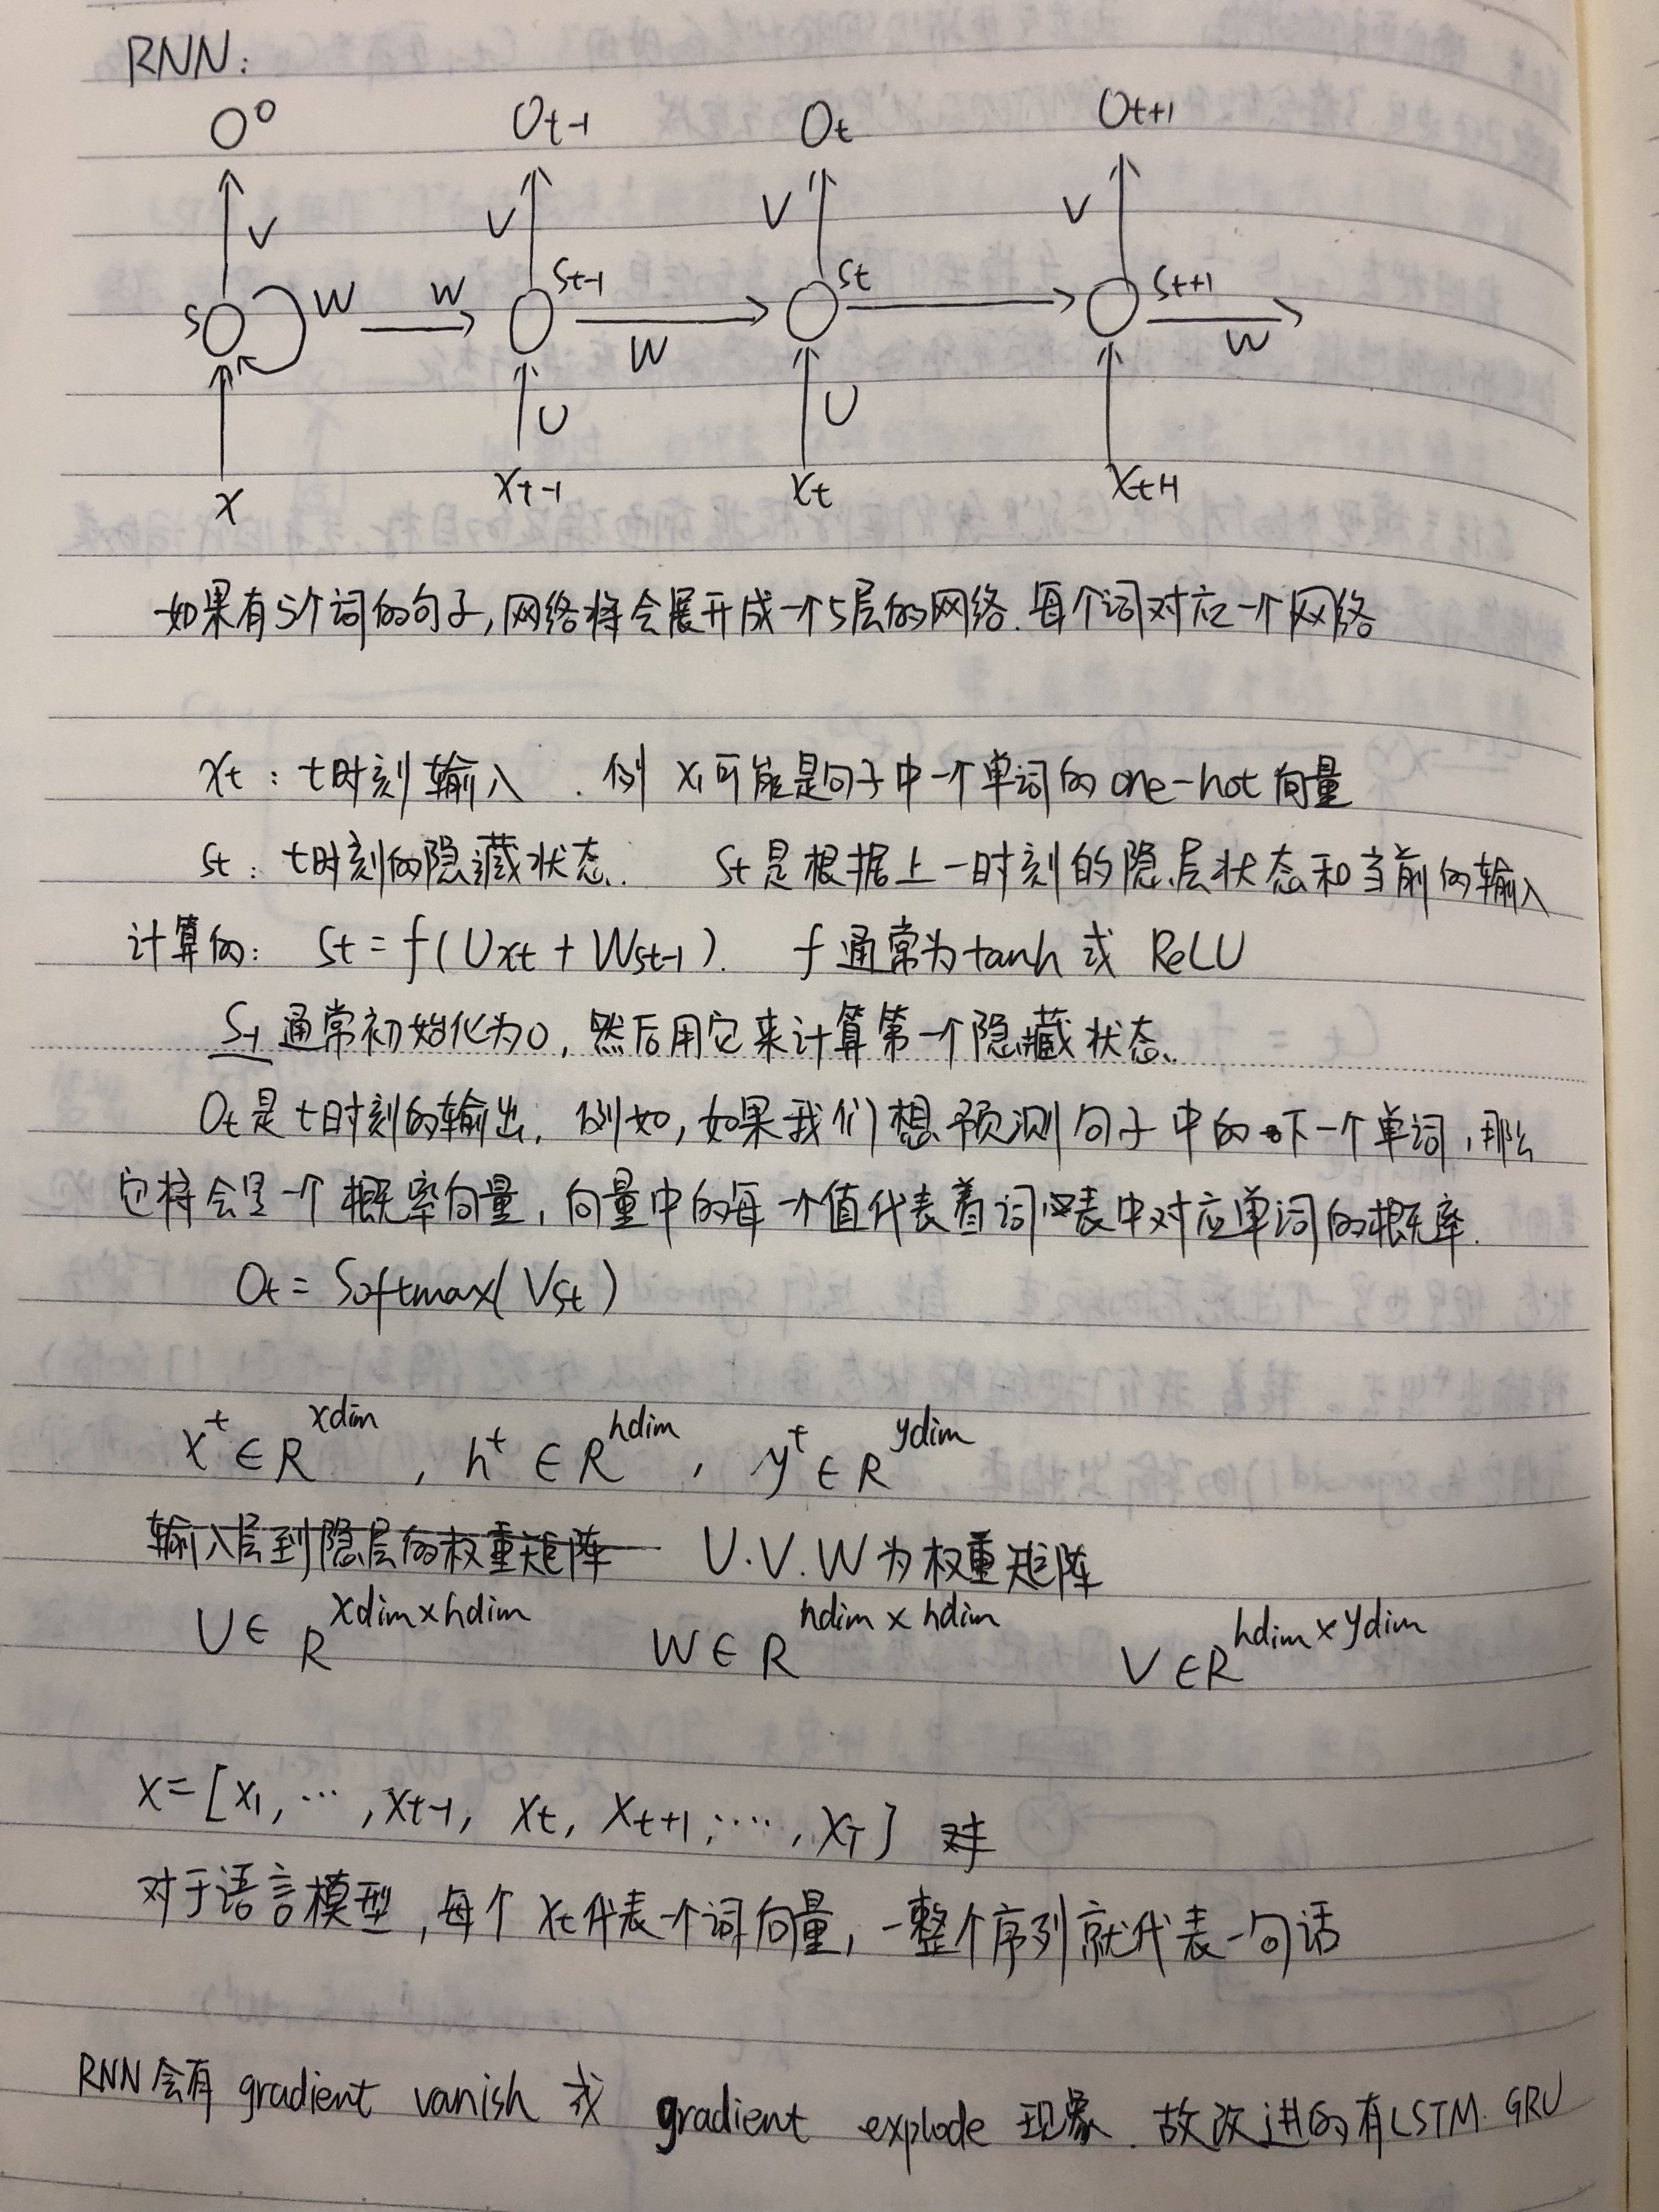 RNN:
O° Ot-1 Ot Ot+1
V V V V
S W W St-1 W St St+1 W
U U
x xt-1 xt xt+1
如果有5个词的句子,网络将会展开成一个5层的网络.每个词对应一个网络
xt: t时刻输入. 例 x1可能是句子中一个单词的one-hot向量
St: t时刻的隐藏状态. St是根据上一时刻的隐层状态和当前的输入
计算的: St = f(Uxt + Wst-1). f通常为tanh或 ReLU
S-1通常初始化为0,然后用它来计算第一个隐藏状态.
Ot是t时刻的输出. 例如,如果我们想预测句子中的下一个单词,那么
它将会是一个概率向量,向量中的每一个值代表着词汇表中对应单词的概率.
Ot = Softmax(VSt)
x^t ∈ R^xdim, h^t ∈ R^hdim, y^t ∈ R^ydim
输入层到隐层的权重矩阵 U.V.W为权重矩阵
U∈ R^xdim×hdim W∈R^hdim×hdim V∈R^hdim×ydim
x=[x1,…,xt-1, xt, xt+1,…,xT] 对
对于语言模型,每个xt代表一个词向量,一整个序列就代表一句话
RNN会有 gradient vanish 或 gradient explode 现象.故改进的有LSTM.GRU